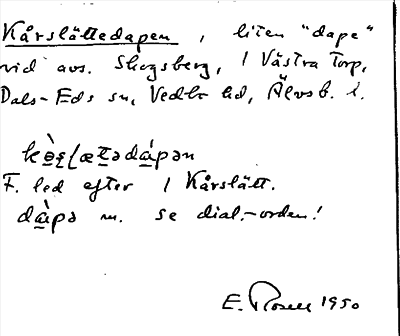 Kårslättedapen, liten "dape"
vid avs. Skogsberg, 1 Västra Torp,
Dals-Eds sn, Vedbo hd, Älvsb. l.
F. led efter 1 Kårslätt.
dàpə m. se dial.-orden!
E. Rosell 1950